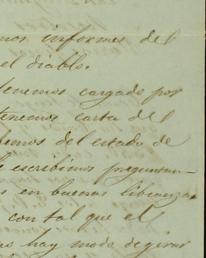 nos informes del
el diablo.
tenemos cargado por
tenemos carta del
bemos del estado de
le escribimos preguntan-
s en buenas libranzas
con tal que el
hay modo de girar